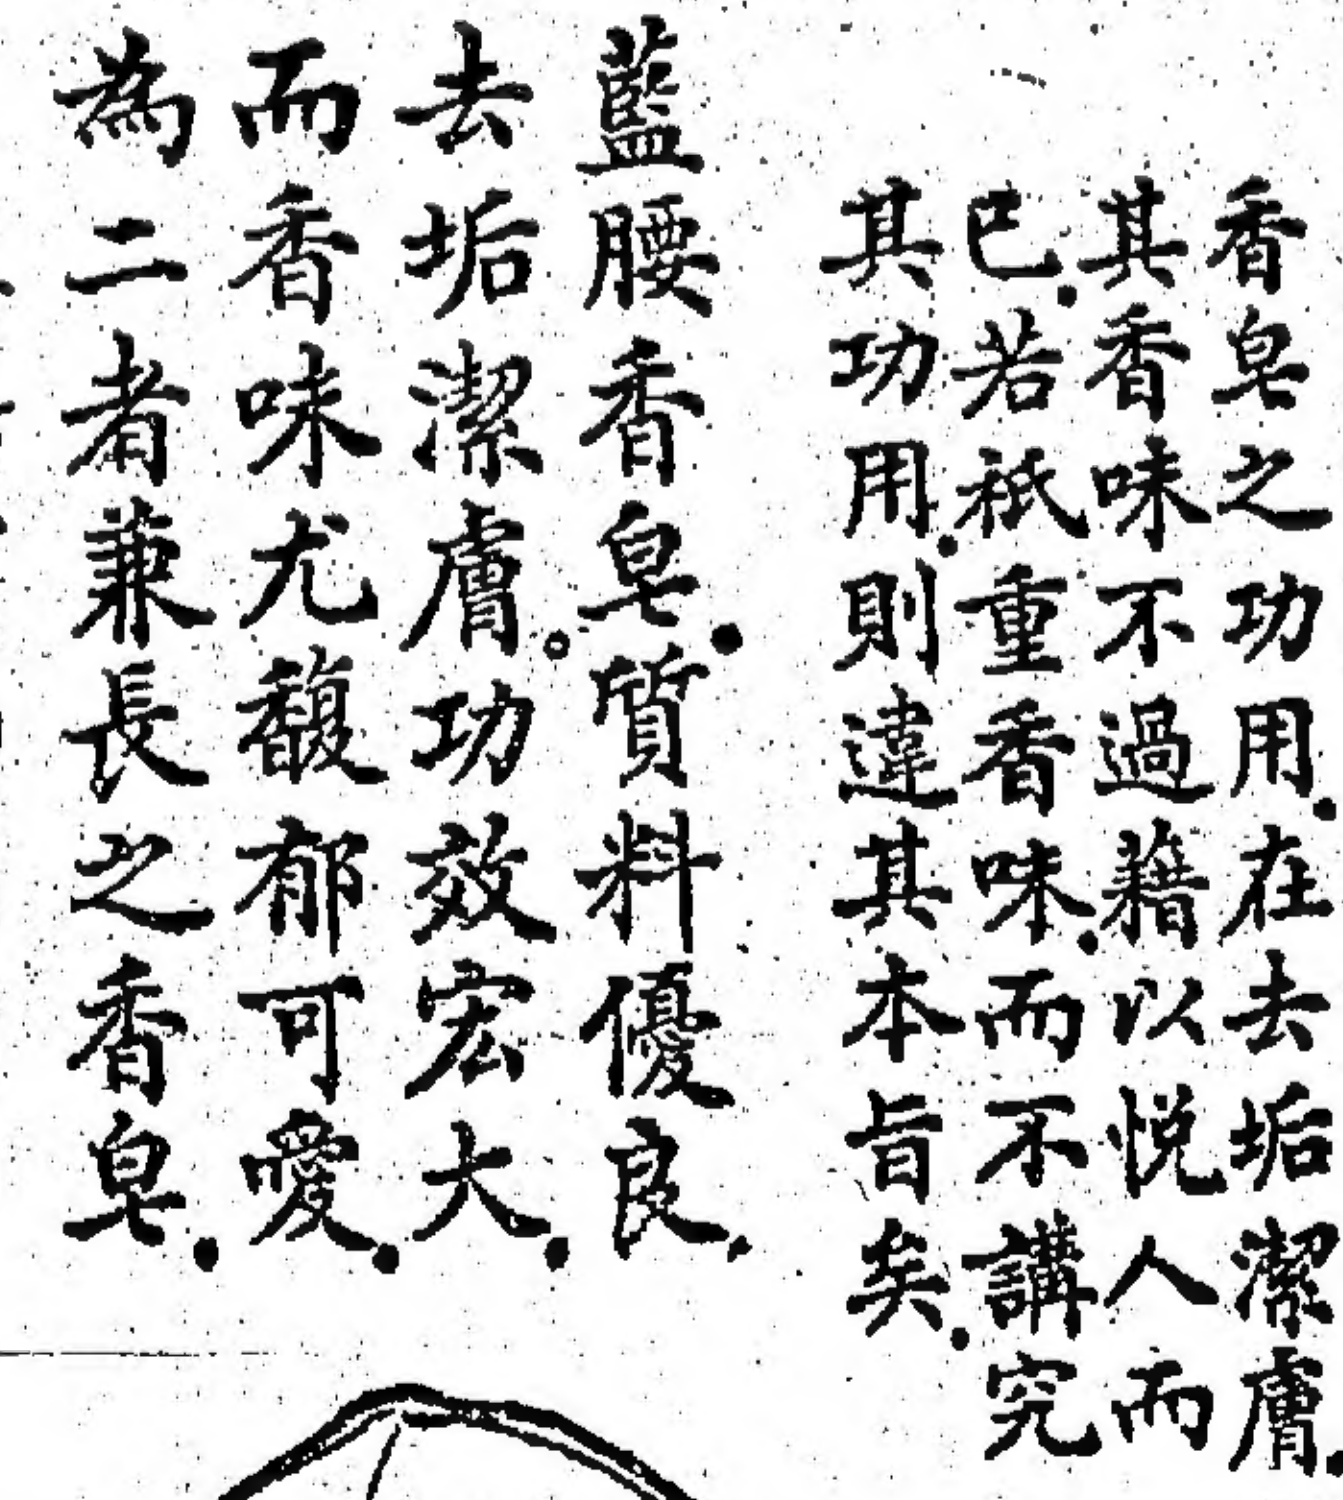 香皂之功用.在去垢潔膚.
其香味不過藉以悅人而
已.若祇重香味.而不講究
其功用.則違其本旨矣.
藍腰香皂.質料優良.
去垢潔膚。功效宏大.
而香味尤馥郁可愛.
為二者兼長之香皂.